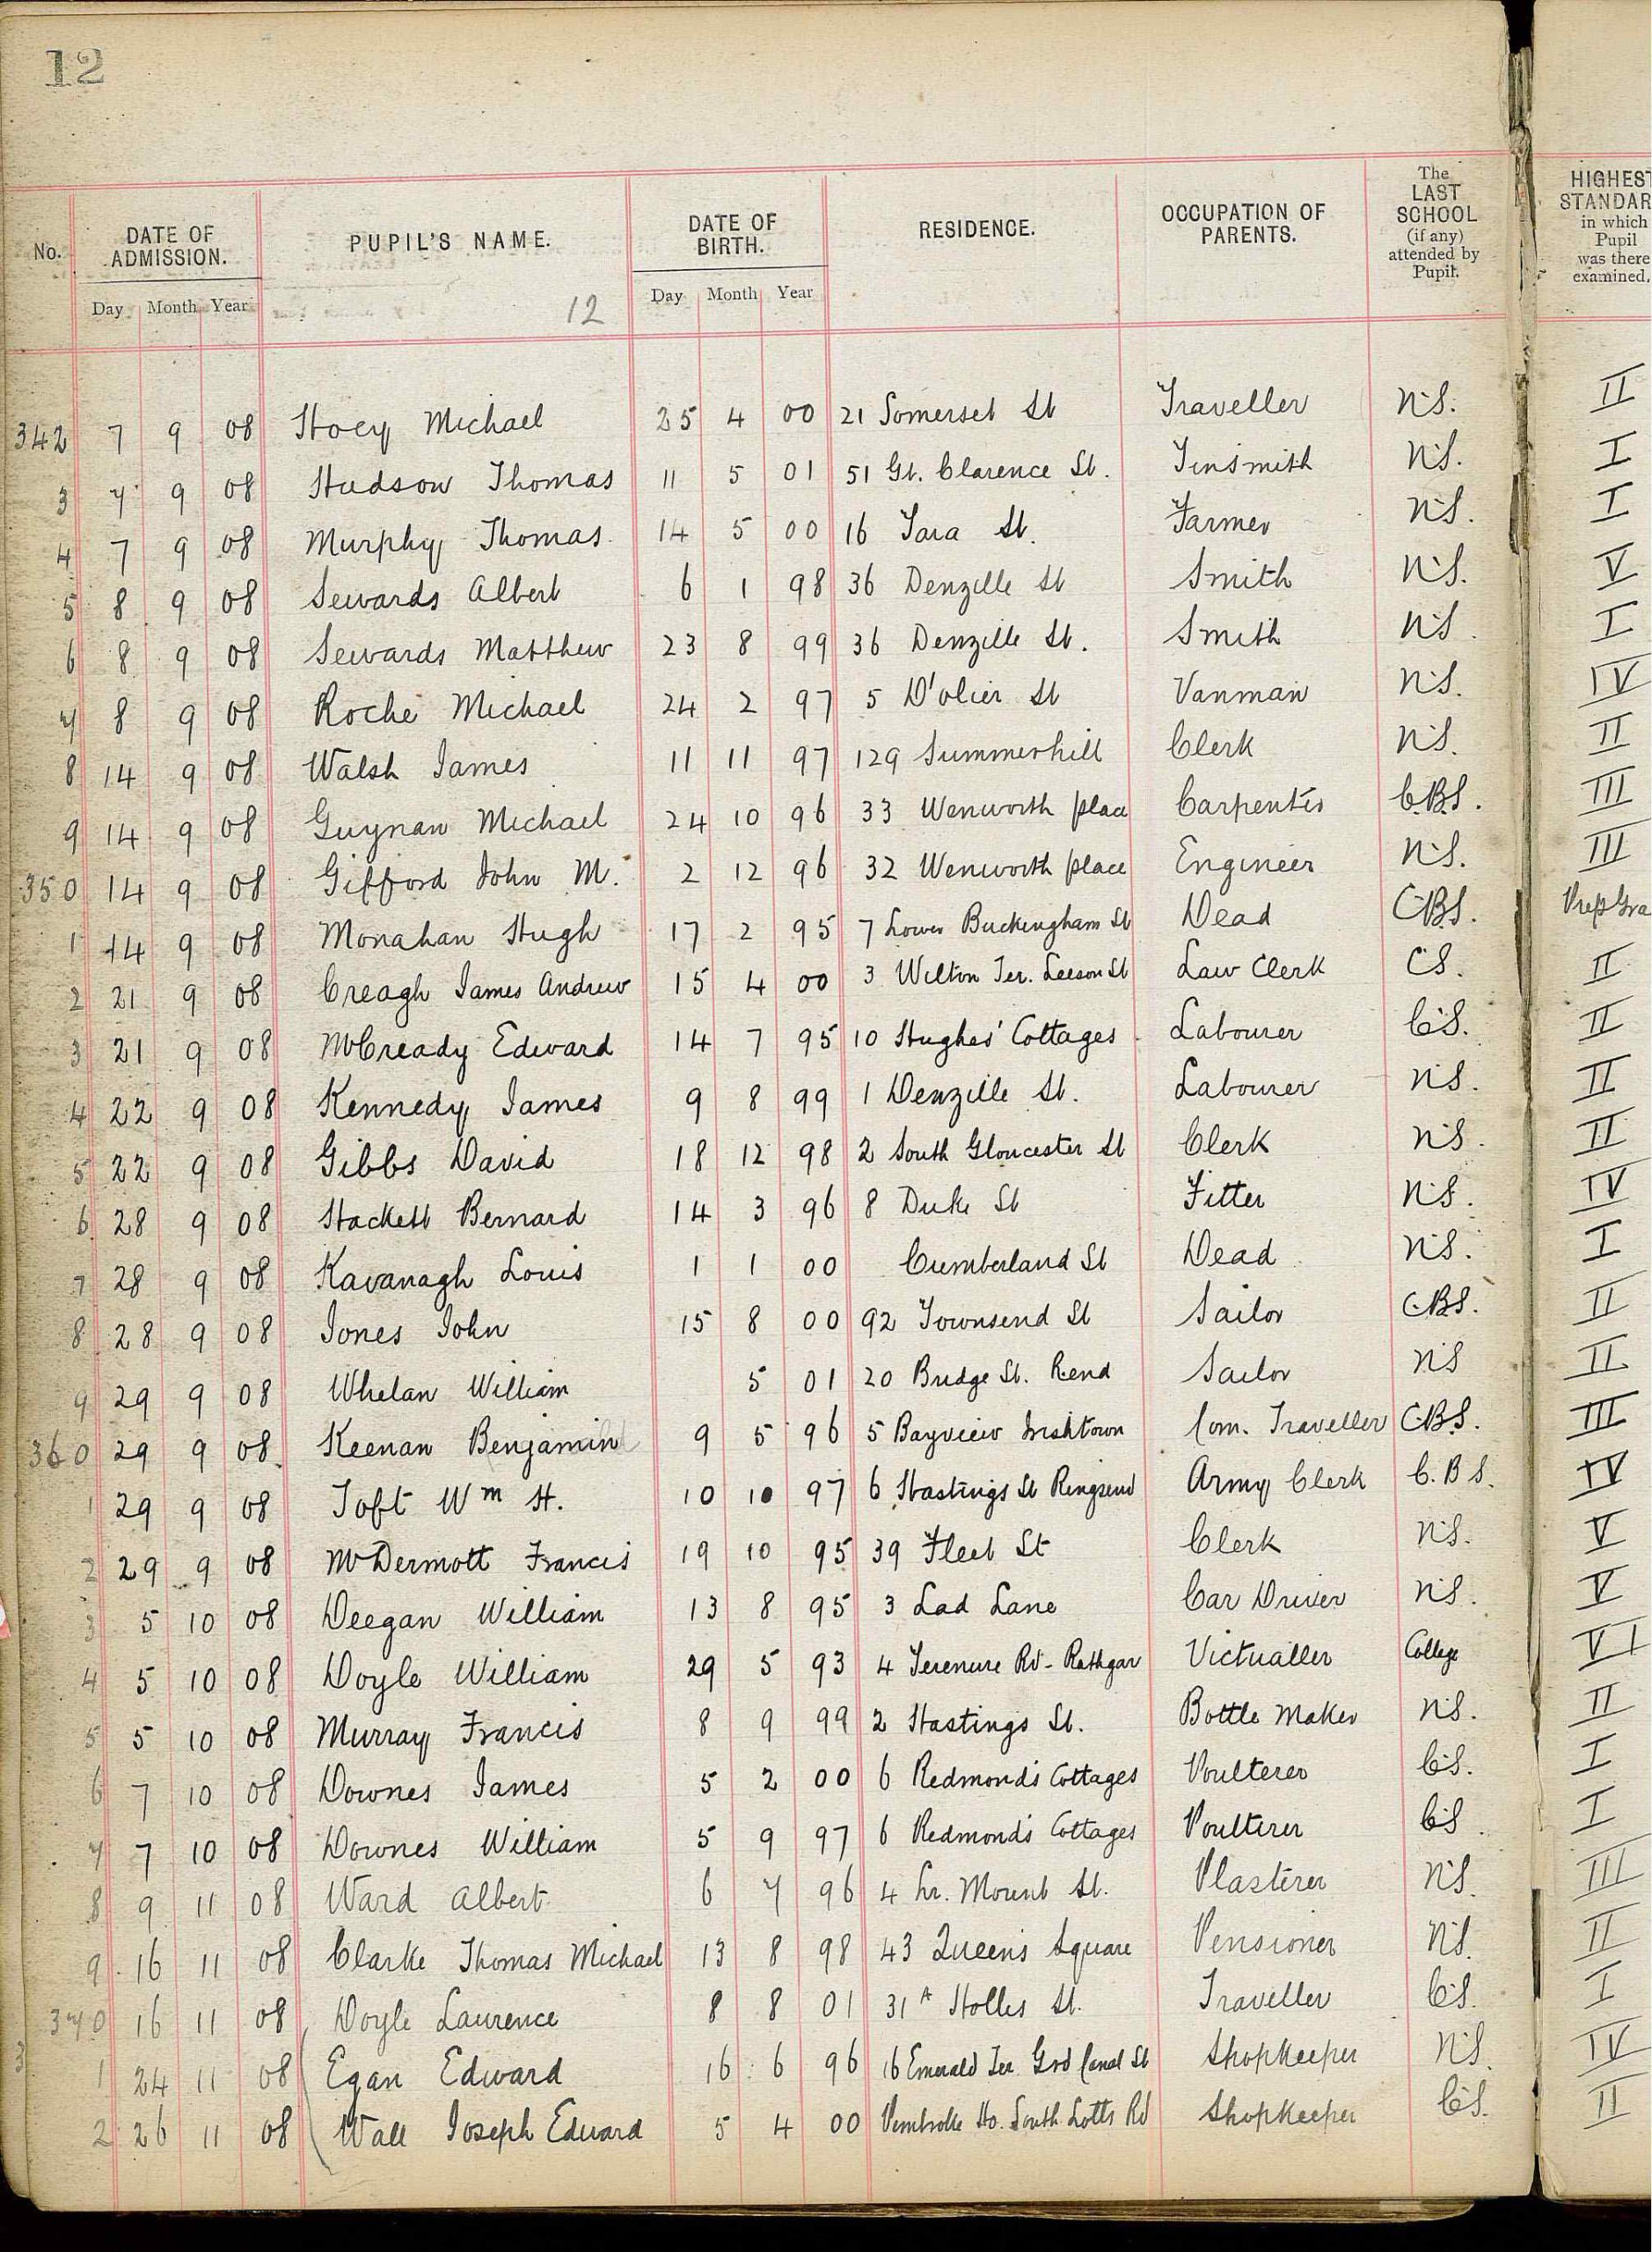 12
No. DATE OF ADMISSION. PUPIL'S NAME. DATE OF BIRTH. RESIDENCE. OCCUPATION OF PARENTS. The LAST SCHOOL (if any) attended by Pupil. HIGHEST STANDAR in which Pupil was there examined.
Day Month Year 12 Day Month Year
342 7 9 08 Hoey Michael 25 4 00 21 Somerset St Traveller N.S. II
3 7 9 08 Hudson Thomas 11 5 01 51 Gt. Clarence St. Tinsmith N.S. I
4 7 9 08 Murphy Thomas 14 5 00 16 Tara St. Farmer N.S. I
5 8 9 08 Sewards Albert 6 1 98 36 Denzille St Smith N.S. V
6 8 9 08 Sewards Matthew 23 8 99 36 Denzille St. Smith N.S. I
7 8 9 08 Roche Michael 24 2 97 5 D'olier St Vanman N.S. IV
8 14 9 08 Walsh James 11 11 97 129 Summerhill Clerk N.S. II
9 14 9 08 Guynan Michael 24 10 96 33 Wenworth place Carpenter C.B.S. III
350 14 9 08 Gifford John M. 2 12 96 32 Wenworth place Engineer N.S. III
1 14 9 08 Monahan Hugh 17 2 95 7 Lower Buckingham St Dead C.B.S. Prep Gra
2 21 9 08 Creagh James Andrew 15 4 00 3 Wilton Ter. Leeson St Law Clerk C.S. II
3 21 9 08 McCready Edward 14 7 95 10 Hughes' Cottages Labourer C.S. II
4 22 9 08 Kennedy James 9 8 99 1 Denzille St. Labourer N.S. II
5 22 9 08 Gibbs David 18 12 98 2 South Gloucester St Clerk N.S. II
6 28 9 08 Hackett Bernard 14 3 96 8 Duke St Fitter N.S. IV
7 28 9 08 Kavanagh Louis 1 1 00 Cumberland St Dead N.S. I
8 28 9 08 Jones John 15 8 00 92 Townsend St Sailor C.B.S. II
9 29 9 08 Whelan William 5 01 20 Bridge St. Rend Sailor N.S II
360 29 9 08 Keenan Benjamin 9 5 96 5 Bayview Irishtown Com. Traveller C.B.S. III
1 29 9 08 Toft Wm H. 10 10 97 6 Hastings St Ringsend Army Clerk C.B.S. IV
2 29 9 08 McDermott Francis 19 10 95 39 Fleet St Clerk N.S. V
3 5 10 08 Deegan William 13 8 95 3 Lad Lane Car Driver N.S. V
4 5 10 08 Doyle William 29 5 93 4 Terenure Rd - Rathgar Victualler College VI
5 5 10 08 Murray Francis 8 9 99 2 Hastings St. Bottle Maker N.S. II
6 7 10 08 Downes James 5 2 00 6 Redmond's Cottages Poulterer C.S. I
7 7 10 08 Downes William 5 9 97 6 Redmond's Cottages Poulterer C.S. I
8 9 11 08 Ward Albert 6 7 96 4 Lr. Mount St. Plasterer N.S. III
9 16 11 08 Clarke Thomas Michael 13 8 98 43 Queen's Square Pensioner N.S. II
370 16 11 08 Doyle Laurence 8 8 01 31A Holles St. Traveller C.S. I
1 24 11 08 Egan Edward 16 6 96 16 Emerald Ter Grd Canal St Shopkeeper N.S. IV
2 26 11 08 Wall Joseph Edward 5 4 00 Pembroke Ho. South Lotts Rd Shopkeeper C.S. II